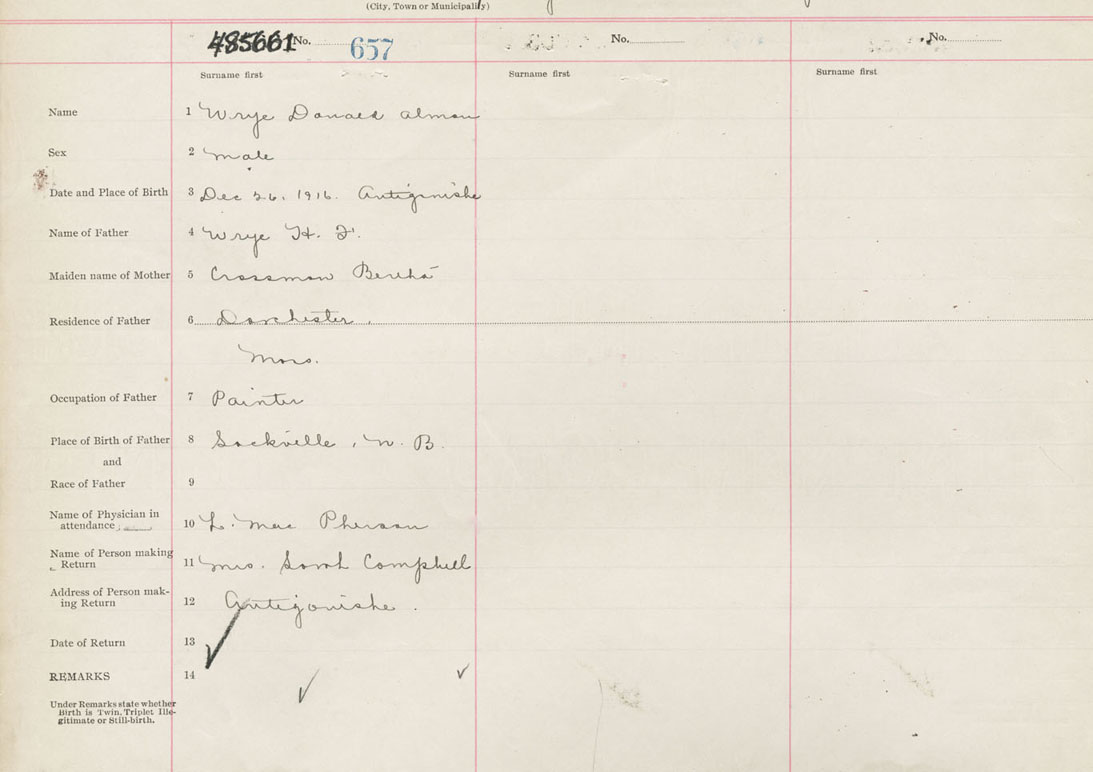 (City, Town or Municipality)
485661 No. 657 No. No.
Surname first Surname first Surname first
Name 1 Wrye Donald Almon
Sex 2 Male
Date and Place of Birth 3 Dec 26, 1916. Antigonishe
Name of Father 4 Wrye H. F.
Maiden name of Mother 5 Crossman Bertha
Residence of Father 6 Dorchester.
Mass.
Occupation of Father 7 Painter
Place of Birth of Father 8 Sackville, N. B.
and
Race of Father 9
Name of Physician in
attendance 10 L. Mac Pherson
Name of Person making
Return 11 Mrs. Sarah Campbell
Address of Person mak-
ing Return 12 Antigonishe.
Date of Return 13
REMARKS 14
Under Remarks state whether
Birth is Twin, Triplet Ille-
gitimate or Still-birth.